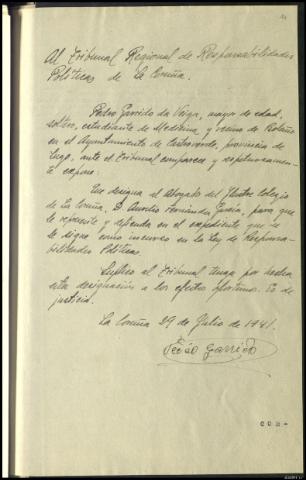 Al Tribunal Regional de Responsabilidades
Políticas de La Coruña.
Pedro Garrido da Veiga, mayor de edad,
soltero, estudiante de Medicina y vecino de Bolaño
en el Ayuntamiento de Castroverde, provincia de
Lugo, ante el Tribunal comparece y respetuosamen-
te expone:
Que designa al Abogado del Ilustre Colegio
de La Coruña, D. Aurelio Fernández para que
le represente y defienda en el expediente que se
le sigue como incurso en la Ley de Responsa-
bilidades Políticas
Suplico al Tribunal tenga por hecha
esta designación a los efectos oportunos. Es de
justicia.
La Coruña 29 de Julio de 1941.
Pedro Garrido